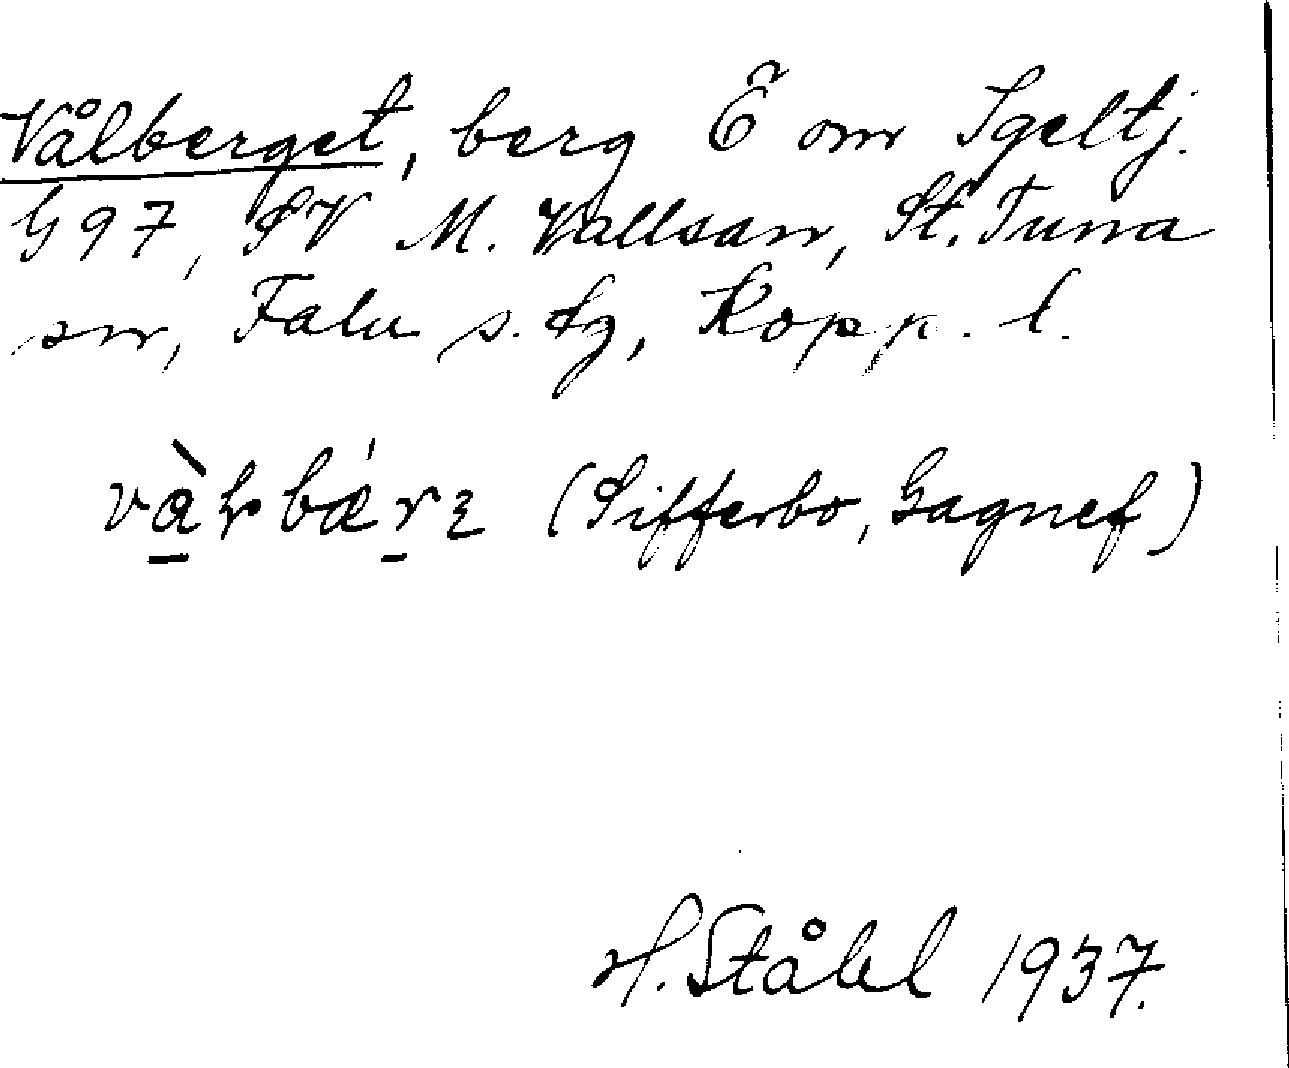 Vålberget, berg Ö om Igeltj.
G97, SV M. Vallsan, St. Tuna
sn, Falu s. dg, Kopp. l.
và̱ɫbæ´r̠ɜ (Sifferbo, Gagnef)
H. Ståhl 1937.